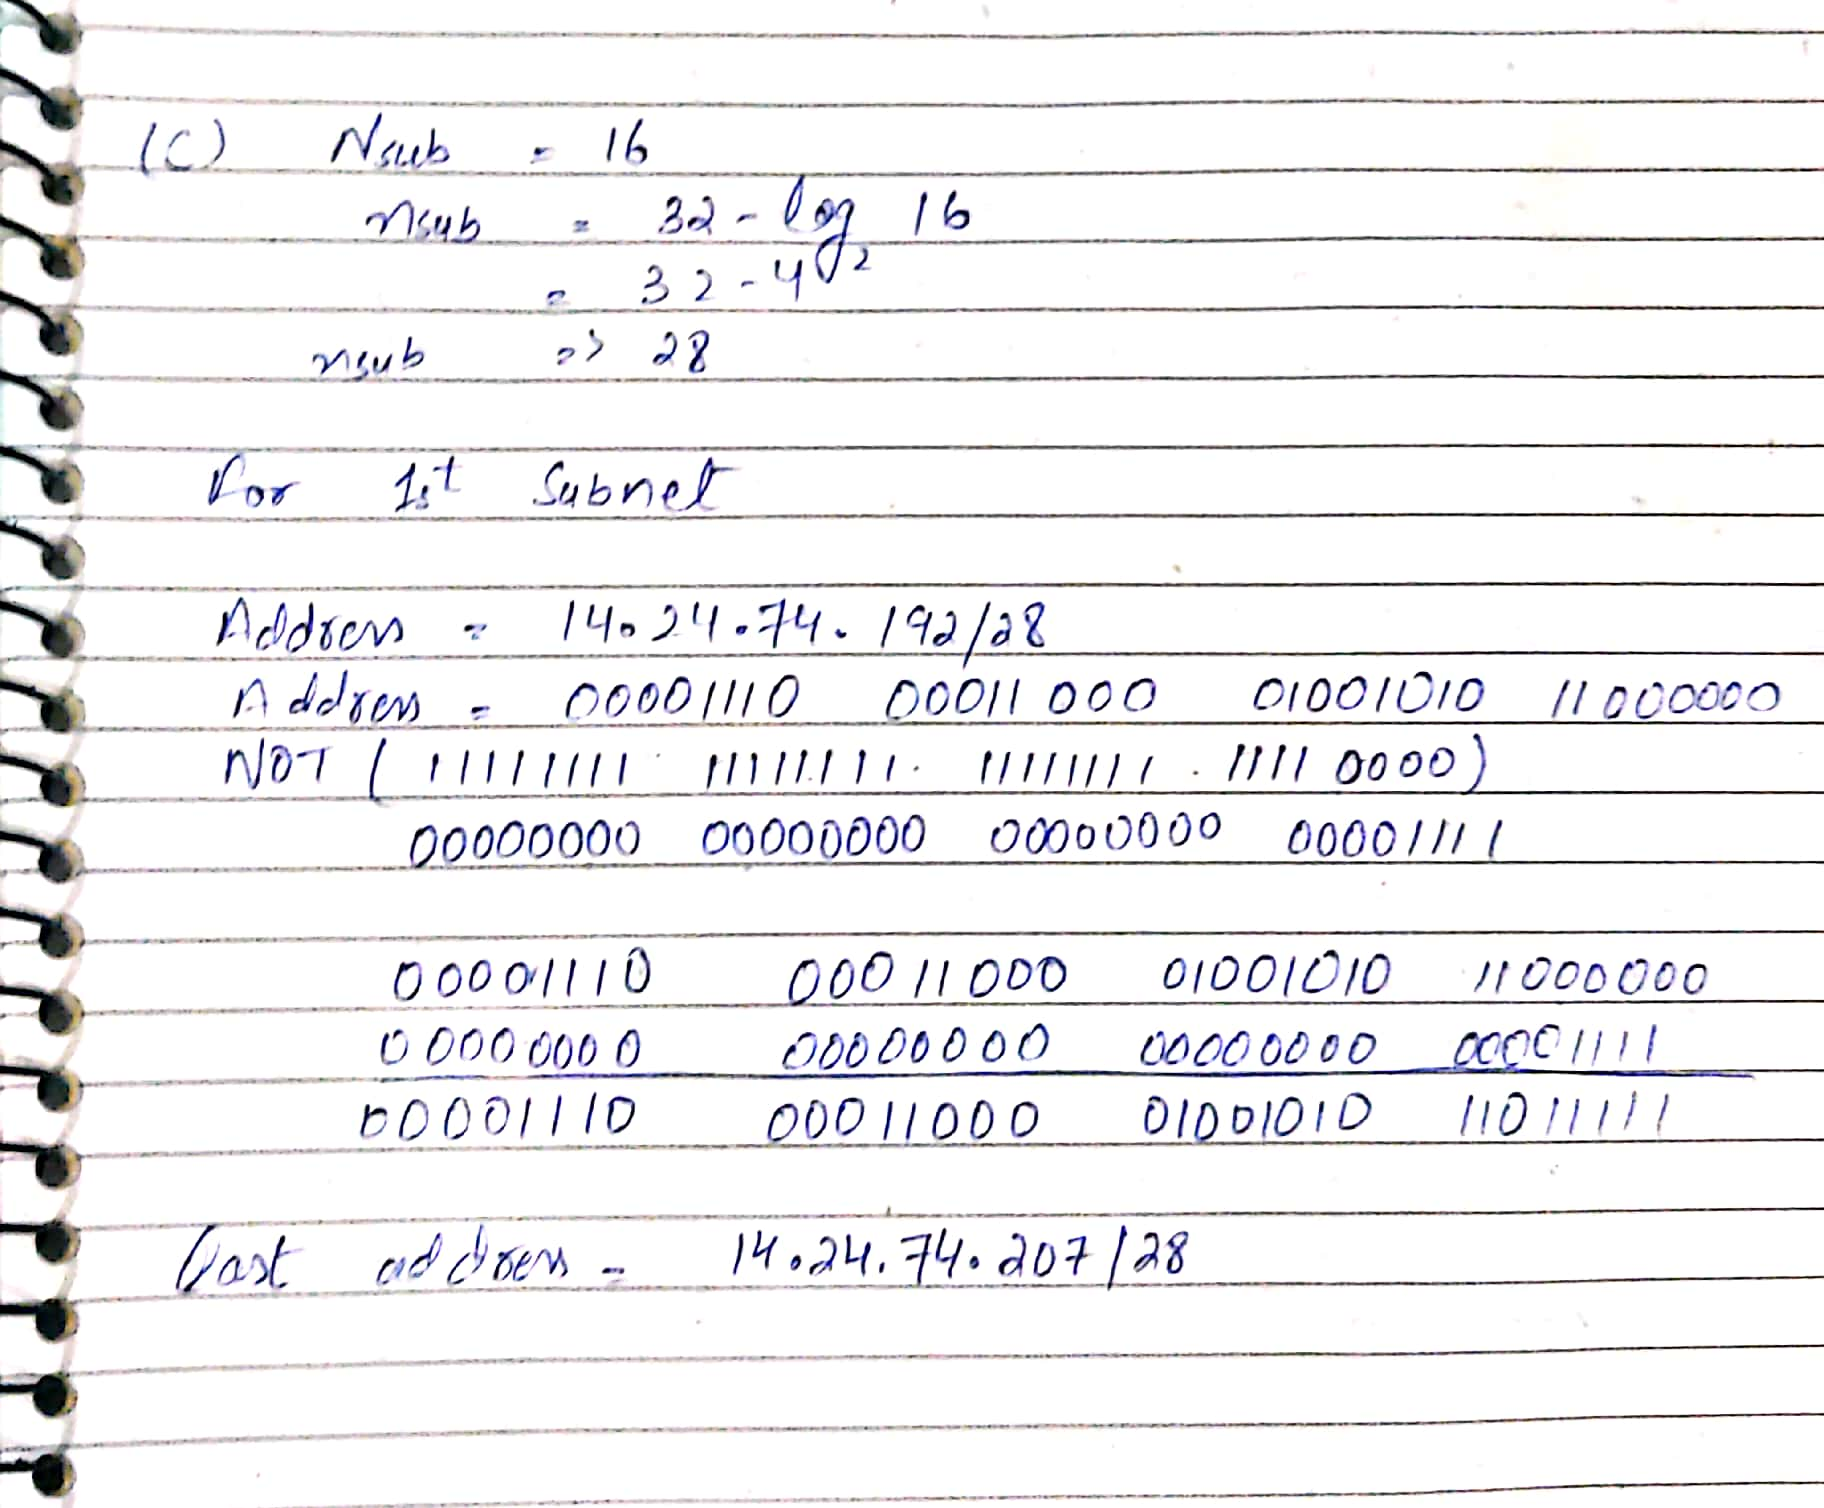 (C) Nsub = 16
nsub = 32 - log₂ 16
= 32 - 4
nsub => 28
For 1st Subnet
Address = 14.24.74.192/28
Address = 00001110 00011000 01001010 11000000
NOT ( 11111111 11111111. 11111111 . 11110000)
00000000 00000000 00000000 00001111
00001110 00011000 01001010 11000000
00000000 00000000 00000000 00001111
00001110 00011000 01001010 11011111
Last address = 14.24.74.207/28